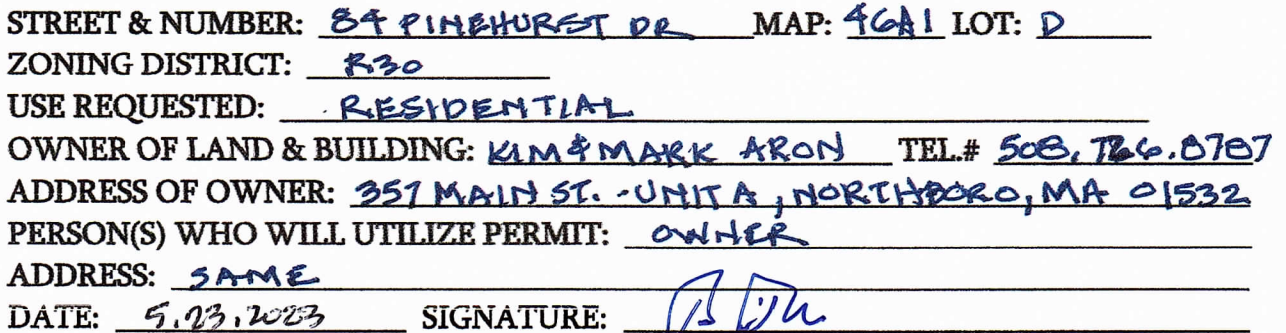 STREET & NUMBER: 84 PINEHURST DR MAP: 46A1 LOT: D
ZONING DISTRICT: R30
USE REQUESTED: RESIDENTIAL
OWNER OF LAND & BUILDING: KIM & MARK ARON TEL.# 508.726.8787
ADDRESS OF OWNER: 357 MAIN ST. - UNIT A, NORTHBORO, MA 01532
PERSON(S) WHO WILL UTILIZE PERMIT: OWNER
ADDRESS: SAME
DATE: 5.23.2023 SIGNATURE: